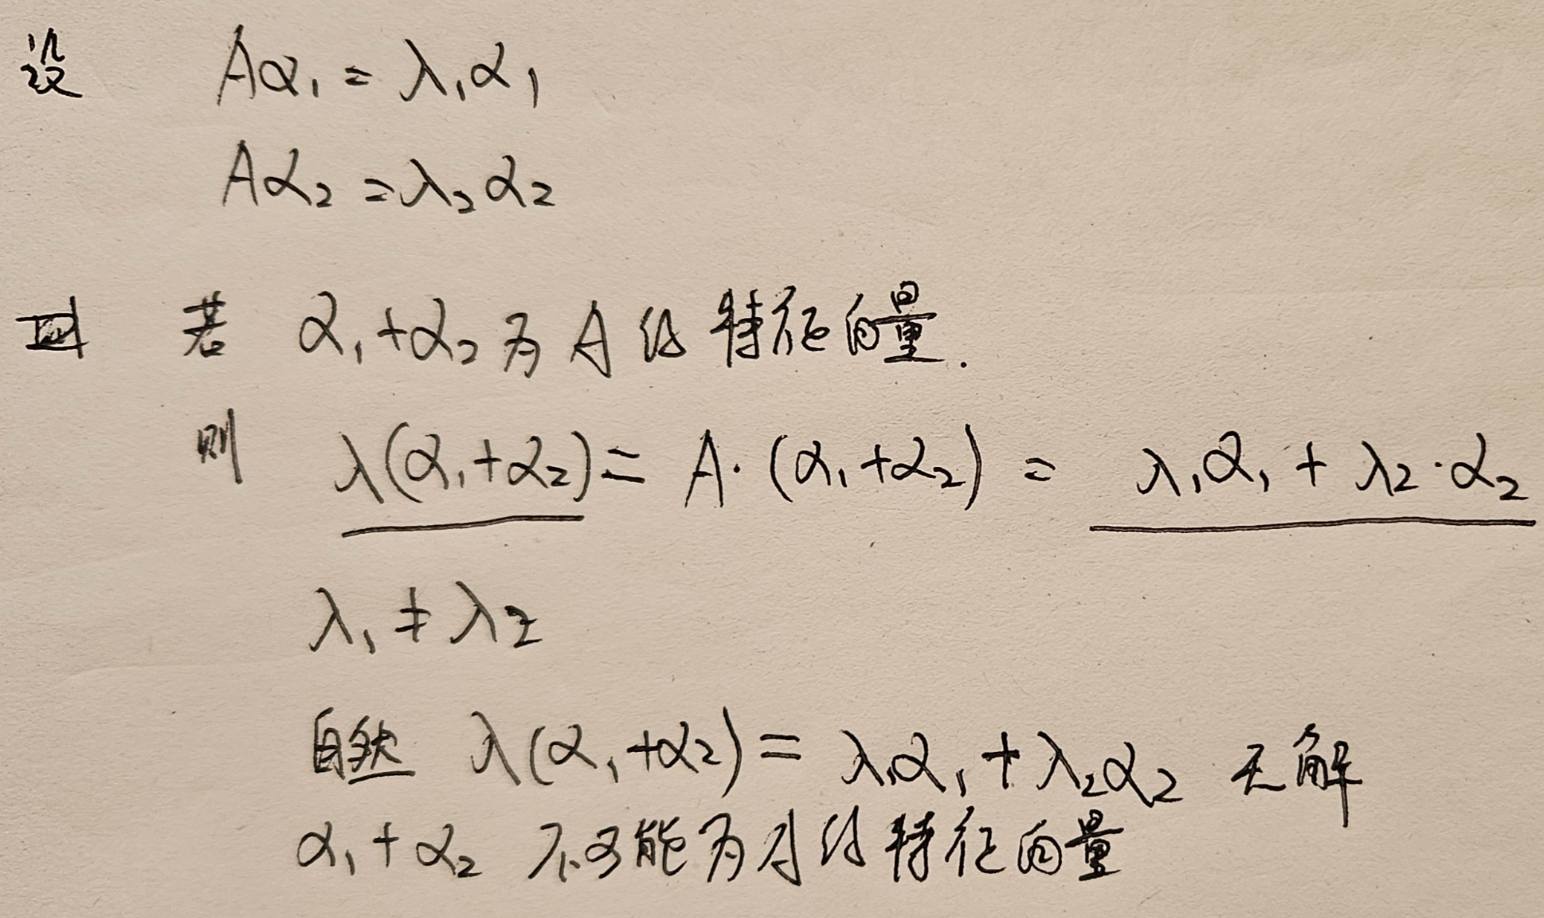 设 Aα₁ = λ₁α₁
Aα₂ = λ₂α₂
若 α₁+α₂ 为 A 的 特征向量.
则 λ(α₁+α₂) = A·(α₁+α₂) = λ₁α₁ + λ₂·α₂
λ₁ ≠ λ₂
自然 λ(α₁+α₂) = λ₁α₁ + λ₂α₂ 无解
α₁+α₂ 不可能为A的特征向量